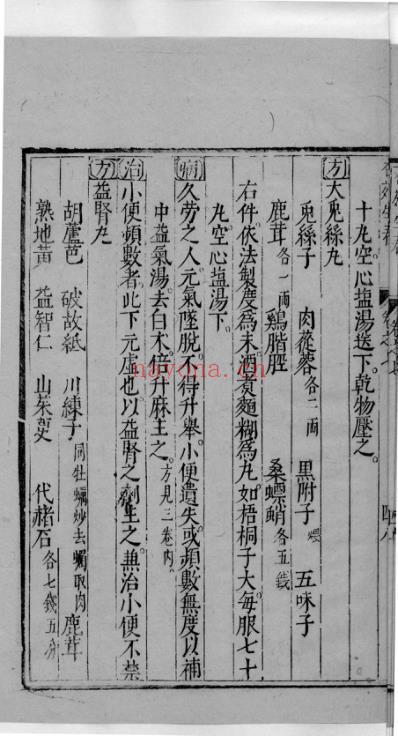 十丸空心塩湯送下乾物壓之
方大兎絲丸
兎絲子 肉蓯蓉各二兩 黒附子煨 五味子
鹿茸各一兩 鷄膍胵 桑螵蛸各五錢
右件依法製度爲末酒煮麵糊爲丸如梧桐子大每服七十
丸空心塩湯下
病久劳之人元氣墜脫不得升舉小便遺失或頻數無度以補
中益氣湯去白术倍升麻主之方見三卷内
治小便頻數者此下元虛也以益腎之劑主之無治小便不禁
方益腎丸
胡蘆芭 破故紙 川練子同牡蠣炒去蠣取肉 鹿茸
熟地黃 益智仁 山茱萸 代赭石各七錢五分
nayona.cn